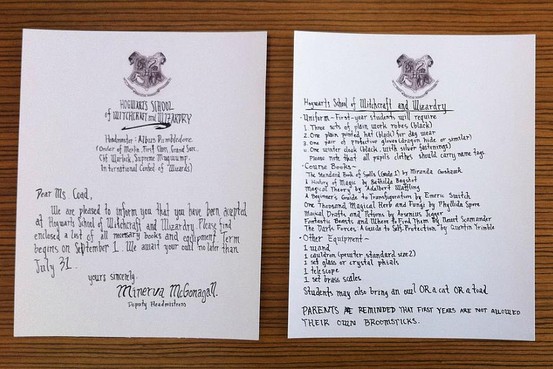 HOGWARTS SCHOOL
of WITCHCRAFT and WIZARDRY
Headmaster: Albus Dumbledore
(Order of Merlin, First Class, Grand Sorc.,
Chf. Warlock, Supreme Mugwump,
International Confed. of Wizards)
Dear Ms.
We are pleased to inform you that you have been accepted
at Hogwarts School of Witchcraft and Wizardry. Please find
enclosed a list of all necessary books and equipment. Term
begins on September 1. We await your owl no later than
July 31.
yours sincerely,
Minerva McGonagall
Deputy Headmistress
Hogwarts School of Witchcraft and Wizardry
~Uniform~ First-year students will require
1. Three sets of plain work robes (black)
2. One plain pointed hat (black) for day wear
3. One pair of protective gloves (dragon hide or similar)
4. One winter cloak (black, with silver fastenings)
Please note that all pupils clothes should carry name tags.
~Course Books~
The Standard Book of Spells (Grade 1) by Miranda Goshawk
A History of Magic by Bathilda Bagshot
Magical Theory by Adalbert Waffling
A Beginner's Guide to Transfiguration by Emeric Switch
One Thousand Magical Herbs and Fungi by Phyllida Spore
Magical Drafts and Potions by Arsenius Jigger
Fantastic Beasts and Where to Find Them by Newt Scamander
The Dark Forces: A Guide to Self-Protection by Quentin Trimble
~Other Equipment~
1 wand
1 cauldron (pewter standard size 2)
1 set glass or crystal phials
1 telescope
1 set brass scales
Students may also bring an owl OR a cat OR a toad
PARENTS ARE REMINDED THAT FIRST YEARS ARE NOT ALLOWED
THEIR OWN BROOMSTICKS.